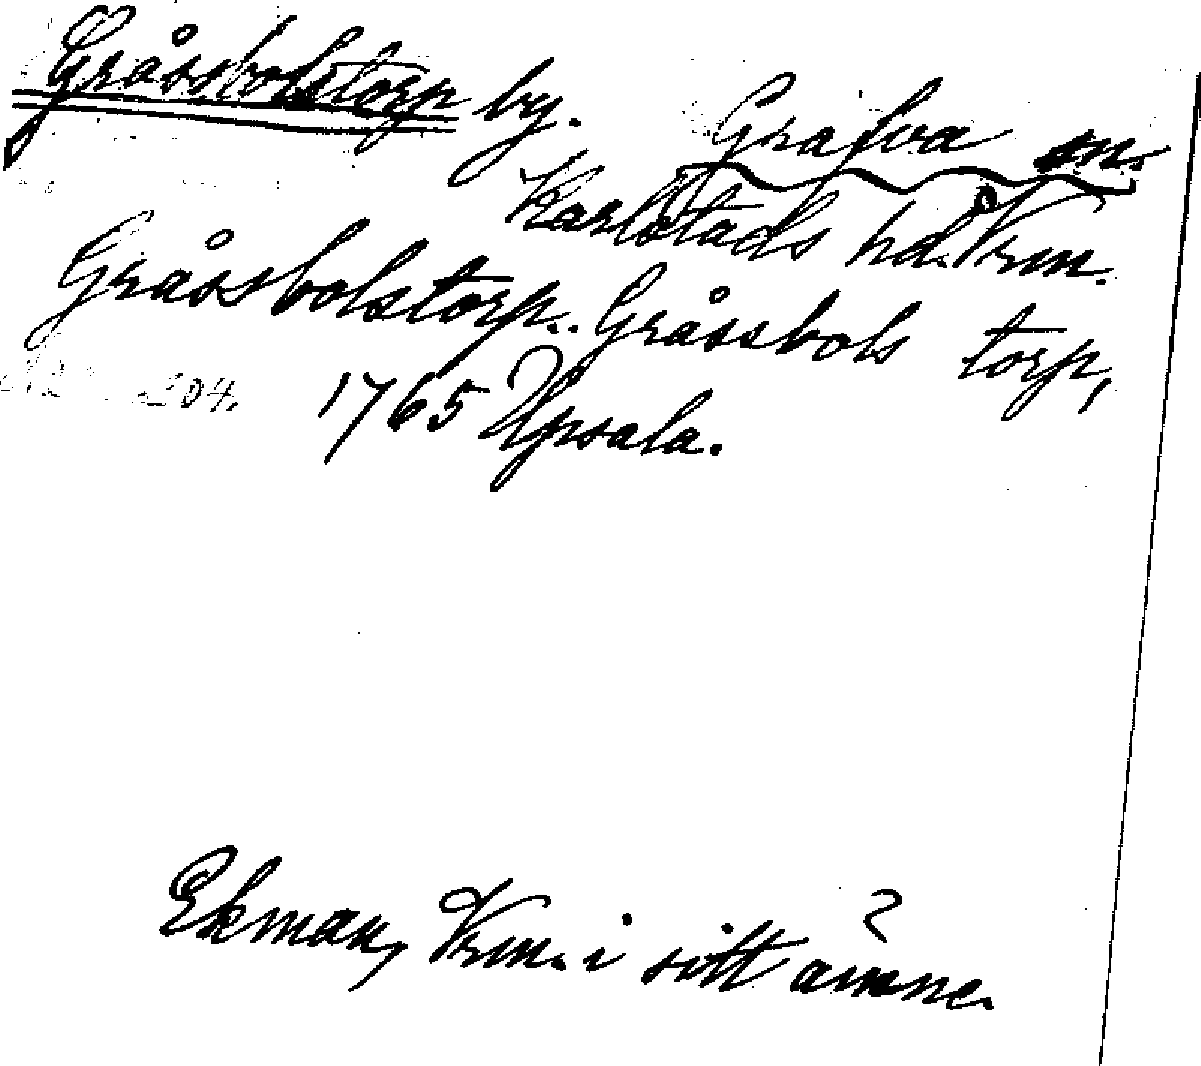 Gråssbolstorp by. Grafva sn.
Karlstads hd. Vrm.
Gråssbolstorp. Gråssbols torp,
1765 Upsala.
Ekman, Vrm. i sitt ämne.